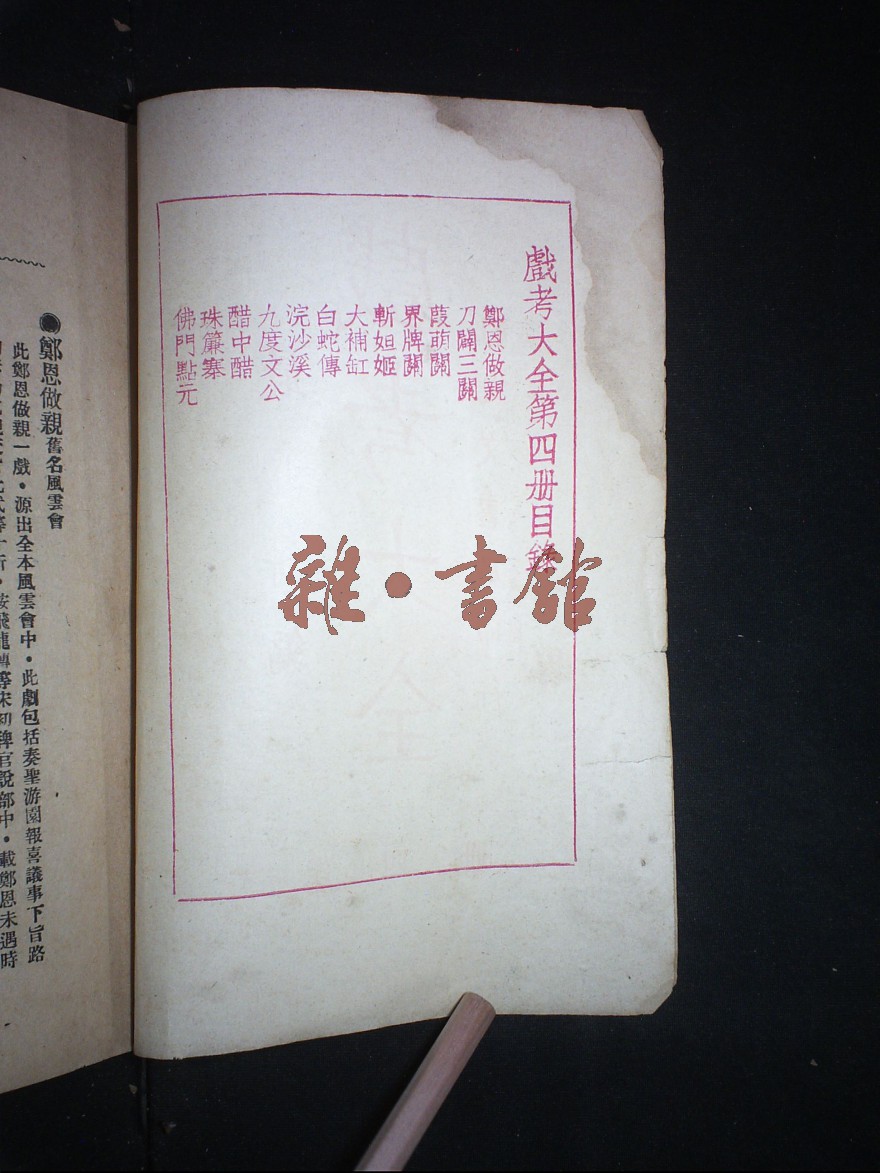 戲考大全第四册目錄
鄭恩做親
刀闢三關
葭萌關
界牌關
斬妲姬
大補缸
白蛇傳
浣沙溪
九度文公
醋中醋
珠簾寨
佛門點元
雜・書館
●鄭恩做親舊名風雲會
此鄭恩做親一戲・源出全本風雲會中・此劇包括奏聖游園報喜議事下旨路